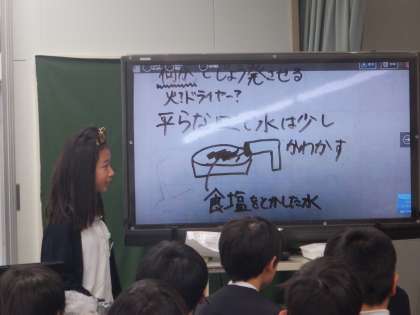 何かでじょう発させる
火?ドライヤー?
平らな 水は少し
かわかす
食塩をとかした水